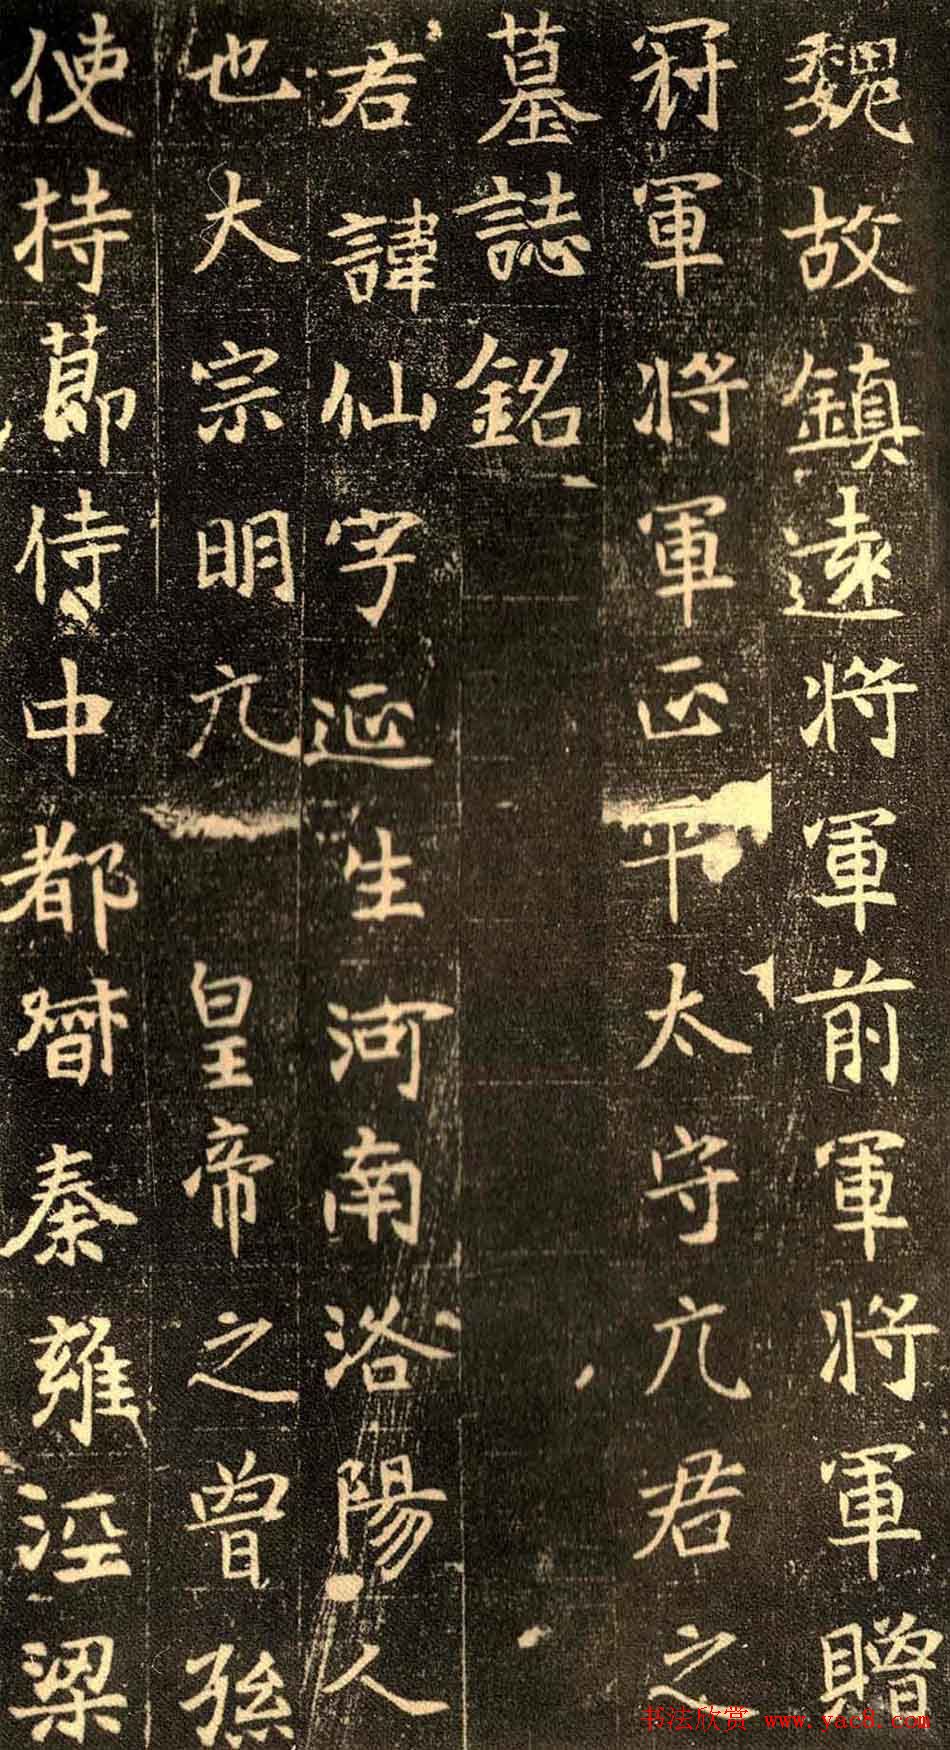 魏故鎮遠將軍前軍將軍贈
冠軍將軍正平太守元君之
墓誌銘
君諱仙字延生河南洛陽人
也大宗明元皇帝之曾孫
使持莭侍中都督秦雍涇梁
书法欣赏 www.yac8.com